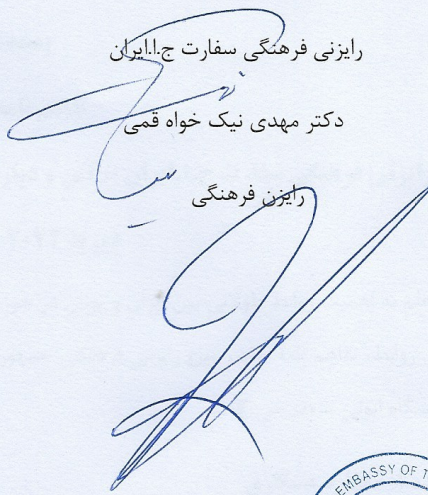 رایزنی فرهنگی سفارت ج.ا.ایران
دکتر مهدی نیک خواه قمی
رایزن فرهنگی
EMBASSY OF T